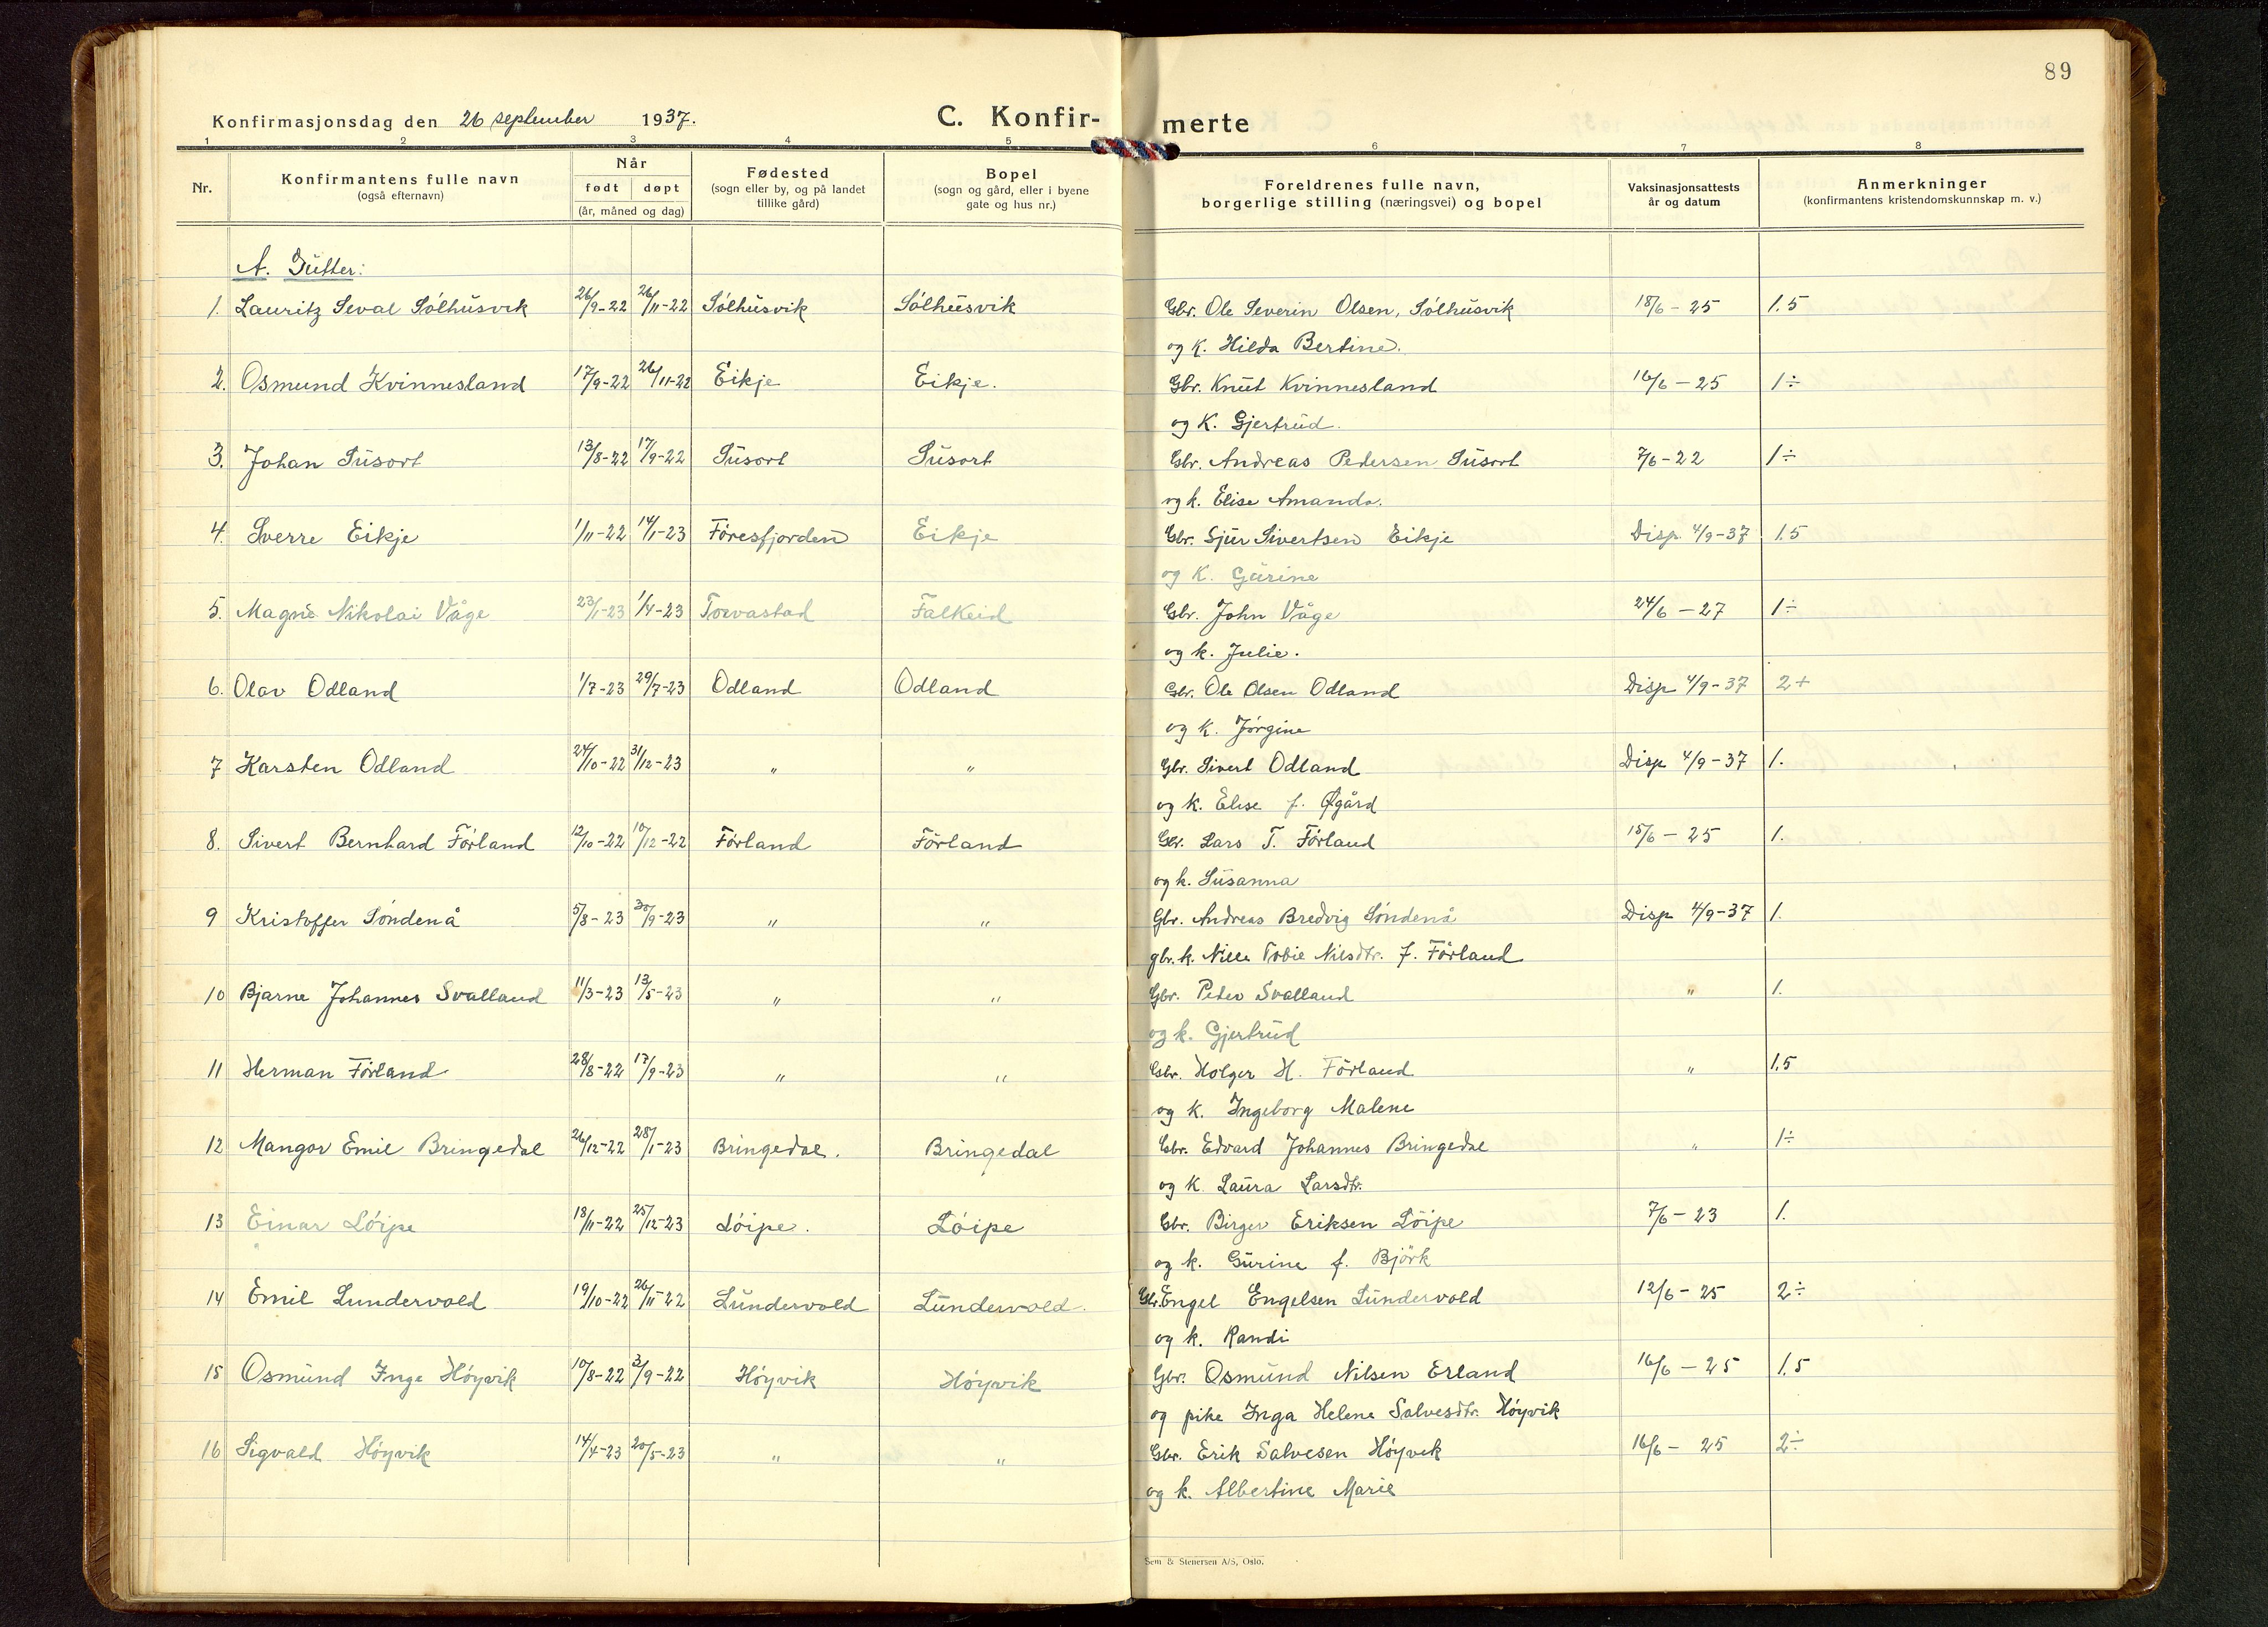 89
Konfirmasjonsdag den 26 september 1937. C. Konfir- merte
1 2 3 4 5 6 7 8
Nr. Konfirmantens fulle navn (også efternavn) Når født døpt (år, måned og dag) Fødested (sogn eller by, og på landet tillike gård) Bopel (sogn og gård, eller i byene gate og hus nr.) Foreldrenes fulle navn, borgerlige stilling (næringsvei) og bopel Vaksinasjonsattests år og datum Anmerkninger (konfirmantens kristendomskunnskap m. v.)
A. Gutter:
1. Lauritz Seval Sólhusvik 26/9-22 26/11-22 Sólhusvik Sólhusvik Gbr. Ole Severin Olsen, Sólhusvik 18/6 - 25 1.5
og k. Hilda Bertine.
2. Osmund Kvinnesland 17/9-22 26/11-22 Eikje Eikje. Gbr. Knut Kvinnesland 16/6 - 25 1÷
og K. Gjertrud.
3. Johan Susort 13/8-22 17/9-22 Susort Susort Gbr. Andreas Pedersen Susort 7/6-22 1÷
og k. Elise Amanda.
4. Sverre Eikje 1/11-22 14/1-23 Fóresfjorden Eikje Gbr. Sjur Sivertsen Eikje Disp. 4/9-37 1.5
og K. Gurine
5. Magne Nikolai Våge 23/1-23 1/4-23 Torvastad Falkeid Gbr. John Våge 24/6 - 27 1÷
og k. Julie.
6. Olav Odland 1/7-23 29/7-23 Odland Odland Gbr. Ole Olsen Odland Disp 4/9-37 2+
og k. Jórgine
7 Karsten Odland 24/10-22 31/12-23 " " Gbr. Sivert Odland Disp 4/9-37 1.
og k. Elise f. Øgård
8. Sivert Bernhard Fórland 12/10-22 10/12-22 Fórland Fórland Gbr. Lars T. Fórland 15/6 - 25 1.
og k. Susanna
9 Kristoffer Sóndenå 5/8-23 30/9-23 " " Gbr. Andreas Bredvig Sóndenå Disp 4/9-37 1.
gbr. k. Nille Tobie Nilsdtr. f. Fórland
10 Bjarne Johannes Svalland 11/3-23 13/5-23 " " Gbr. Peder Svalland " 1.
og k. Gjertrud
11 Herman Fórland 28/8-22 17/9-23 " " Gbr. Holger H. Fórland " 1.5
og K. Ingeborg Malene
12 Mangor Emil Bringedal 26/12-22 28/1-23 Bringedal. Bringedal Gbr. Edvard Johannes Bringedal " 1÷
og K Laura Larsdtr.
13 Einar Lóipe 18/11-22 25/12-23 Lóipe. Lóipe Gbr. Birger Eriksen Lóipe 7/6 - 23 1.
og k. Gurine f. Björk
14 Emil Lundervold 19/10-22 26/11-22 Lundervold Lundervold. Gbr. Engel Engelsen Lundervold 12/6 - 25 2÷
og k. Randi
15 Osmund Inge Hóyvik 10/8-22 3/9-22 Hóyvik Hóyvik Gbr. Osmund Nilsen Erland 16/6 - 25 1.5
og pike Inga Helene Salvesdtr. Hóyvik
16 Sigvald Hóyvik 14/4-23 20/5-23 " " Gbr. Erik Salvesen Hóyvik 16/6 - 25 2÷
og k. Albertine Marie
Sem & Stenersen A/S, Oslo.